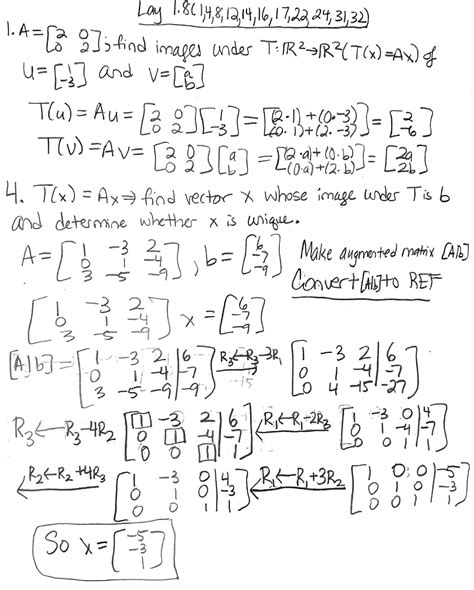 Lay 1.8(1,4,8,12,14,16,17,22,24,31,32)
1. A=[2 0; 0 2]; find images under T:ℝ²→ℝ²(T(x)=Ax) of
u=[1; -3] and v=[a; b]
T(u)=Au=[2 0; 0 2][1; -3]=[(2·1)+(0·-3); (0·1)+(2·-3)]=[2; -6]
T(v)=Av=[2 0; 0 2][a; b]=[(2·a)+(0·b); (0·a)+(2·b)]=[2a; 2b]
4. T(x)=Ax⇒find vector x whose image under T is b
and determine whether x is unique.
A=[1 -3 2; 0 1 -4; 3 -5 -9], b=[6; -7; -9] Make augmented matrix [A|b]
Convert [A|b] to REF
[1 -3 2; 0 1 -4; 3 -5 -9] x=[6; -7; -9]
[A|b]=[1 -3 2|6; 0 1 -4|-7; 3 -5 -9|-9] R₃←R₃-3R₁ [1 -3 2|6; 0 1 -4|-7; 0 4 -15|-27]
-15
R₃←R₃-4R₂ [1 -3 2|6; 0 1 -4|-7; 0 0 1|1] R₁←R₁-2R₃ [1 -3 0|4; 0 1 -4|-7; 0 0 1|1]
R₂←R₂+4R₃ [1 -3 0|4; 0 1 0|-3; 0 0 1|1] R₁←R₁+3R₂ [1 0 0|-5; 0 1 0|-3; 0 0 1|1]
So x=[-5; -3; 1]